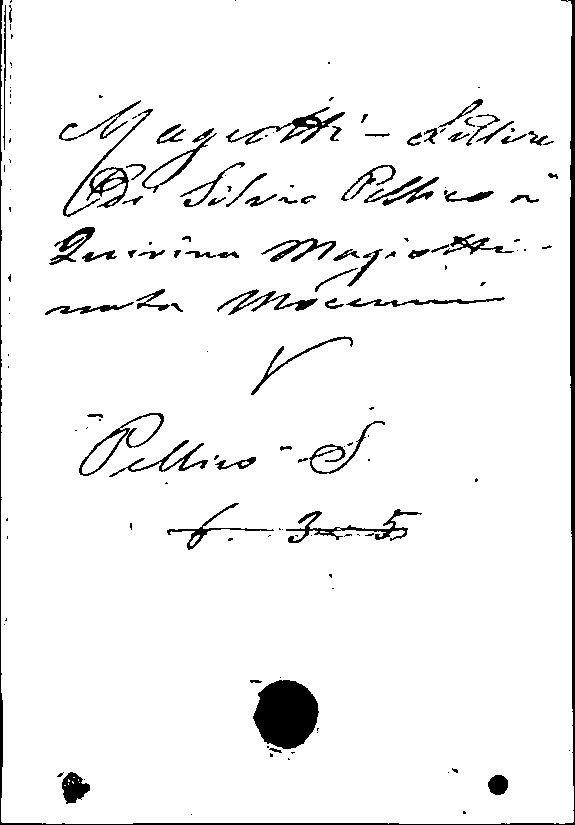 Magiotti - Lettere
Di Silvio Pellico a
Quirina Magiotti -
nata Mocenni
V
"Pellico" - S.
6. 3. 5